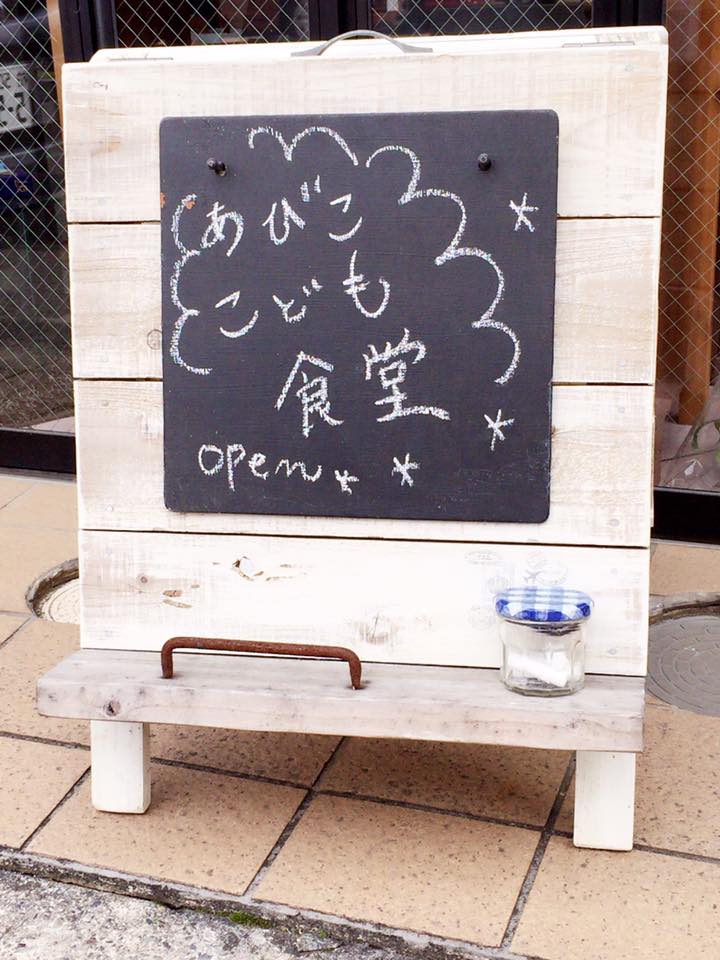 あびこ
こども
食堂
open